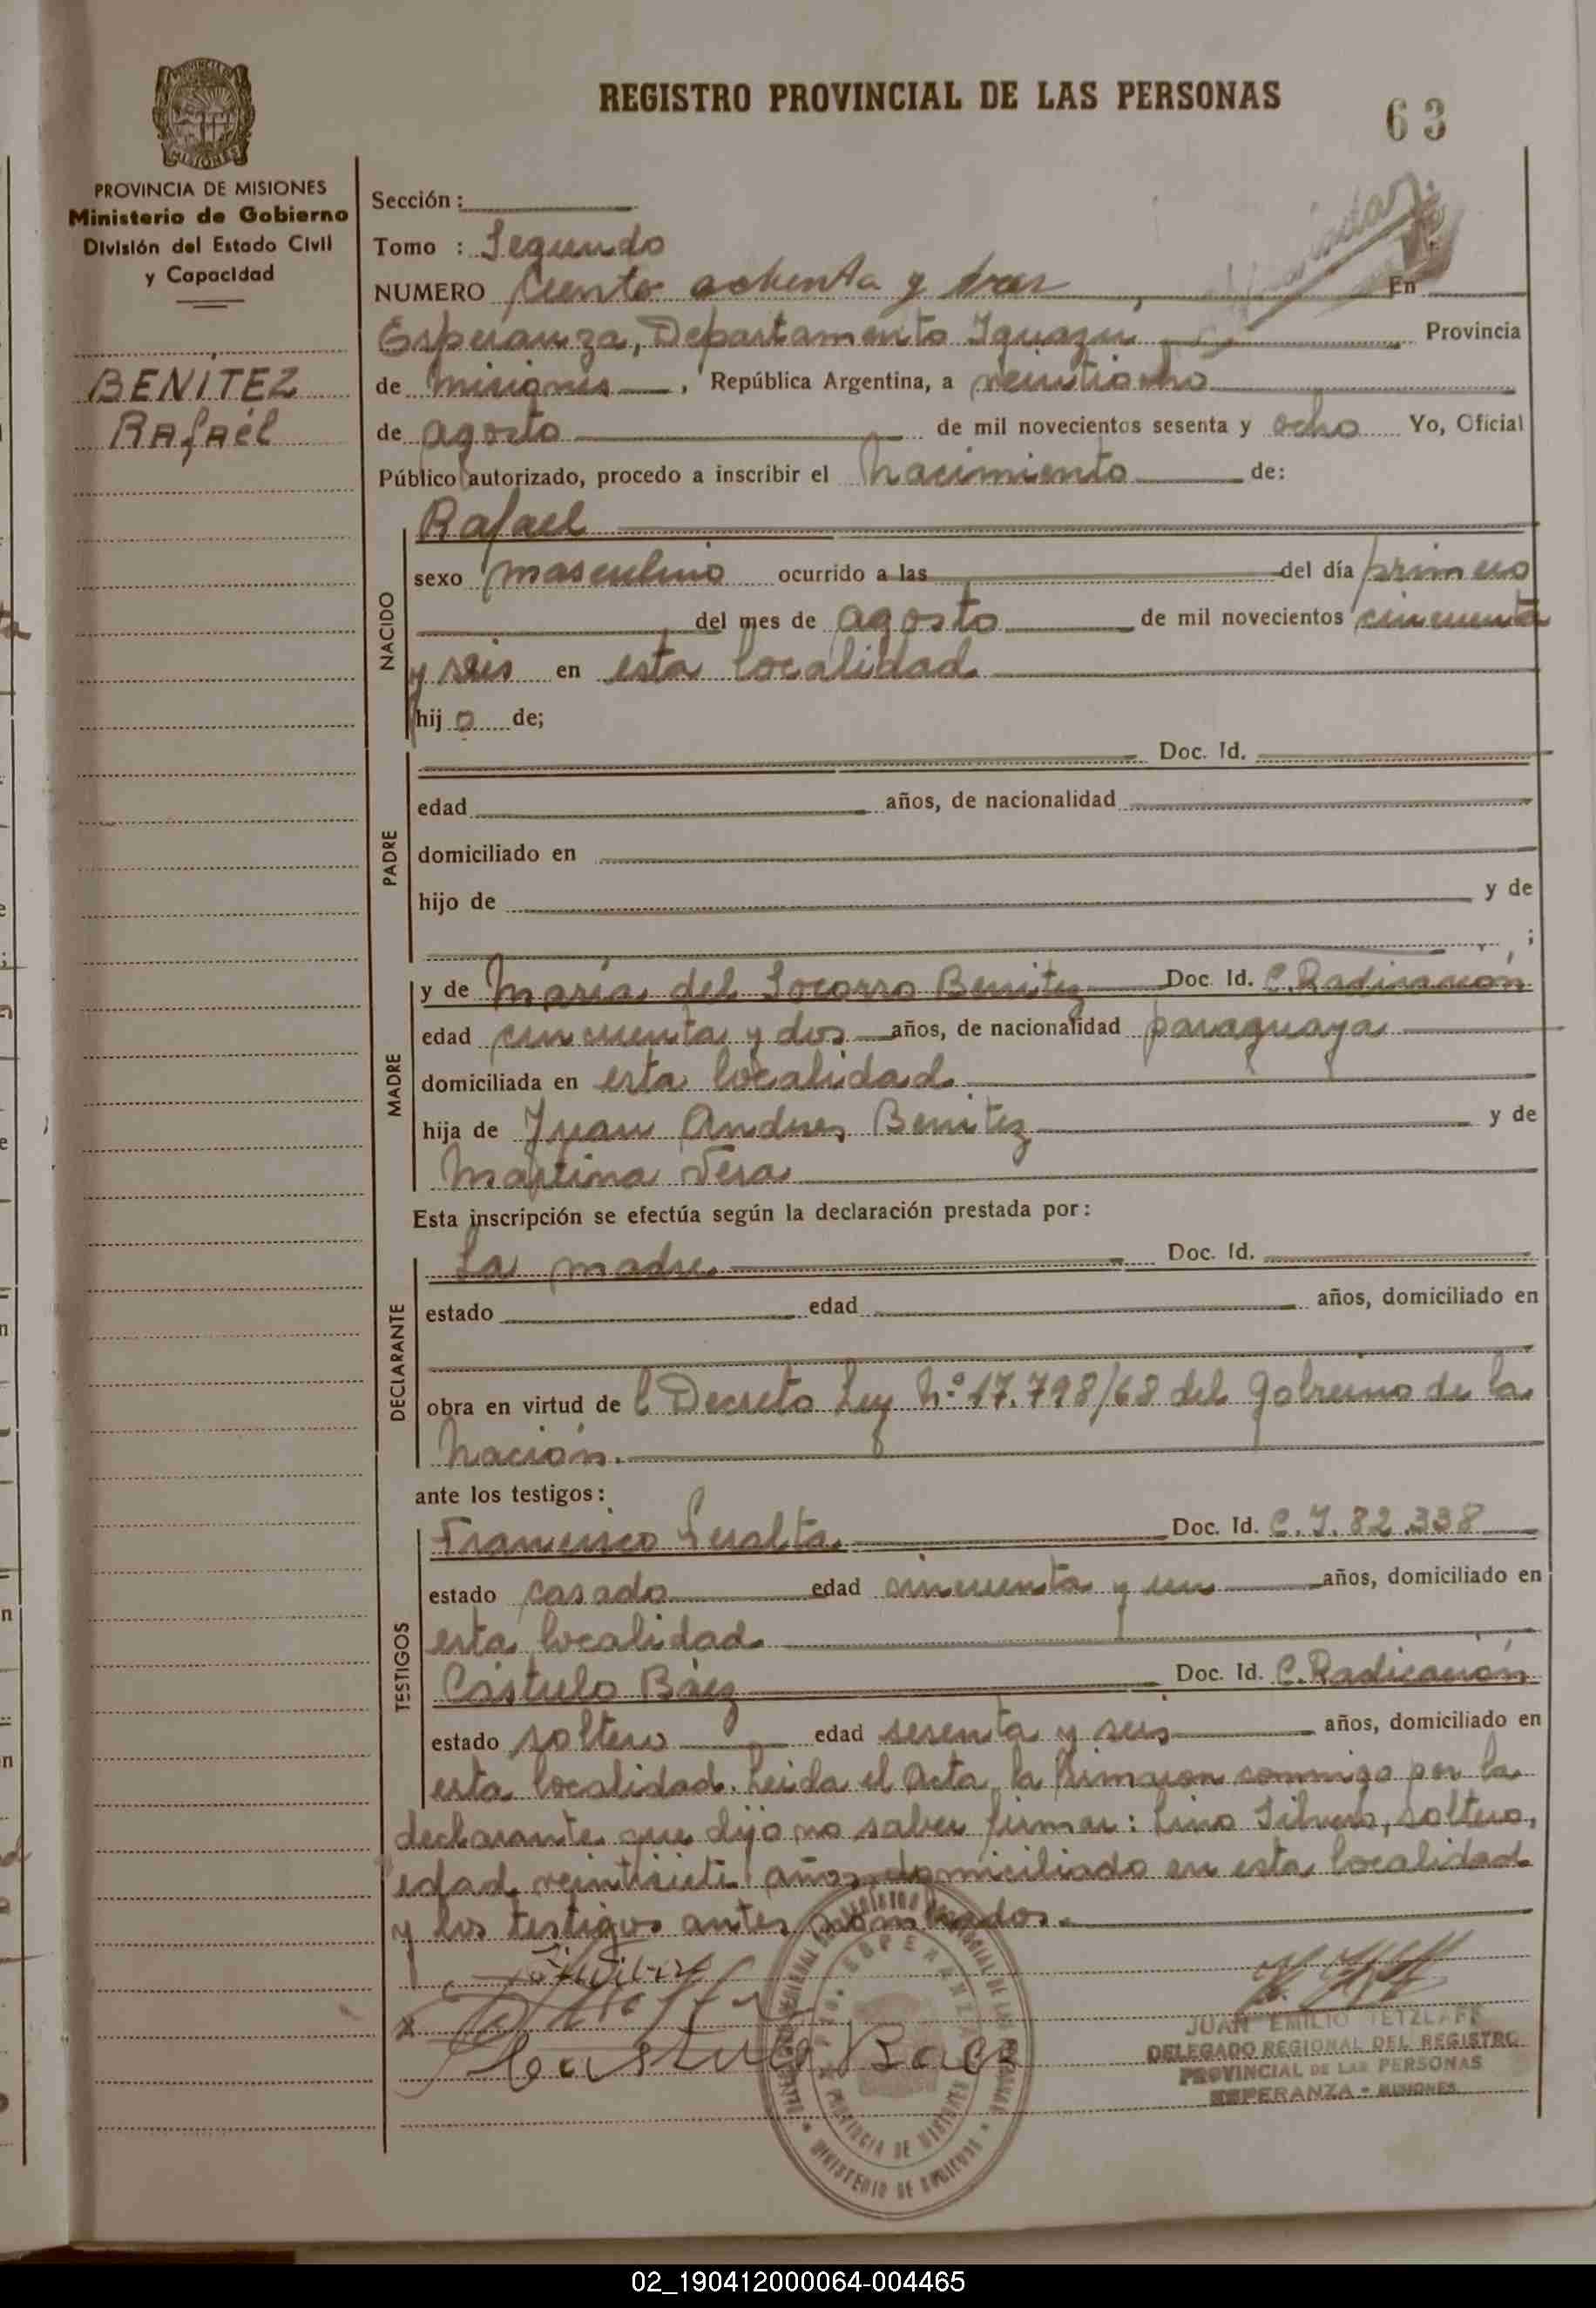 REGISTRO PROVINCIAL DE LAS PERSONAS
63
PROVINCIA DE MISIONES
Ministerio de Gobierno
División del Estado Civil
y Capacidad
BENÍTEZ
Rafaél
Sección:
Tomo : Segundo
NUMERO Ciento ochenta y tres En
Esperanza, Departamento Iguazú Provincia
de Misiones, República Argentina, a veintiocho
de agosto de mil novecientos sesenta y ocho Yo, Oficial
Público autorizado, procedo a inscribir el nacimiento de:
NACIDO
Rafael
sexo masculino ocurrido a las del día primero
del mes de agosto de mil novecientos cincuenta
y seis en esta localidad
hijo de;
PADRE
Doc. Id.
edad años, de nacionalidad
domiciliado en
hijo de y de
;
MADRE
y de María del Socorro Benitez Doc. Id. C. Radicación
edad cincuenta y dos años, de nacionalidad paraguaya
domiciliada en esta localidad
hija de Juan Andres Benitez y de
Martina Vera
Esta inscripción se efectúa según la declaración prestada por:
DECLARANTE
La madre Doc. Id.
estado edad años, domiciliado en
obra en virtud de l Decreto Ley N° 17.798/68 del Gobierno de la
Nación.
ante los testigos:
TESTIGOS
Francisco Peralta Doc. Id. C.I. 82.338
estado casado edad cincuenta y un años, domiciliado en
esta localidad
Cástulo Báez Doc. Id. C. Radicación
estado soltero edad sesenta y seis años, domiciliado en
esta localidad. Leida el Acta, la firmaron conmigo por la
declarante que dijo no saber firmar: Lino soltero,
edad veintisiete años, domiciliado en esta localidad
y los testigos antes nombrados.
Castulo Baez
JUAN EMILIO TETZLAFF
DELEGADO REGIONAL DEL REGISTRO
PROVINCIAL DE LAS PERSONAS
ESPERANZA - MISIONES
PROVINCIA DE MISIONES
02_190412000064-004465